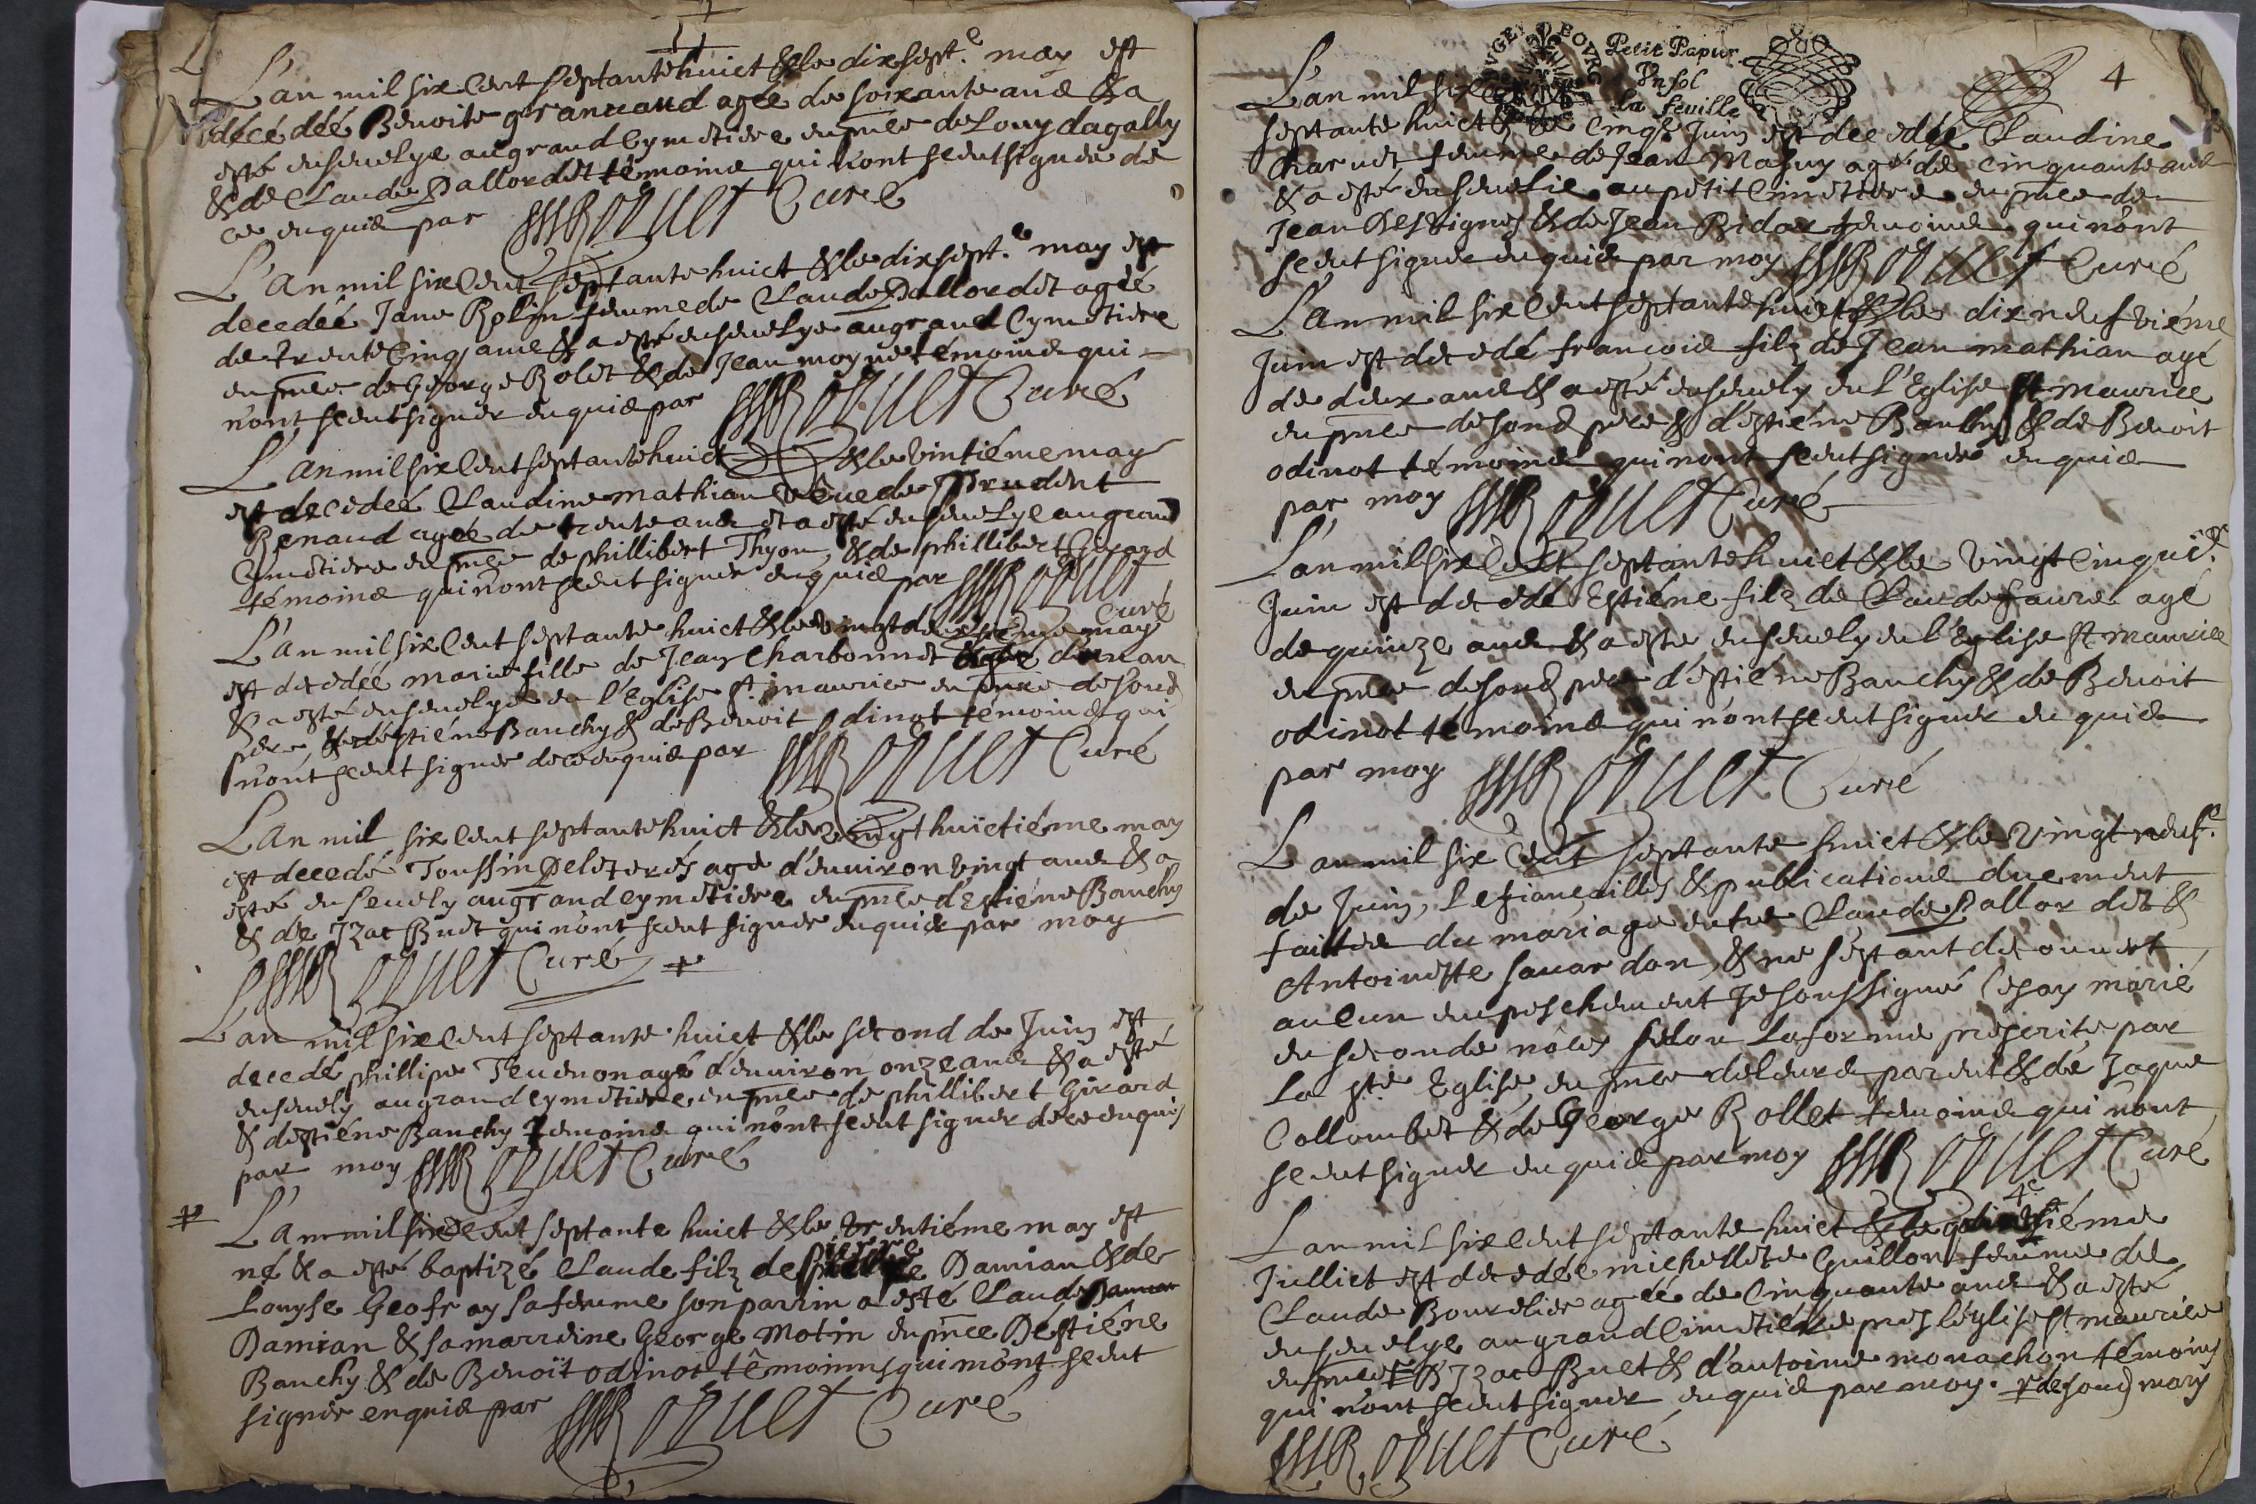 L'an mil six Cent septante huict & le dix sept.e may est
décédéé Benoite granuaud agéé de soixante ans & a
esté enseuelye au grand Cymetiere en pñce de Louy dagally
& de Claude Pallordet témoins qui n'ont sceut signer de
ce enquis par Rozuet Curé
L'An mil six Cent septante huict & le dix sept.e may est
decedéé Jane Rolin femme de Claude Pallordet agéé
de Trente Cinq ans & a esté enseuelye au grand Cymetiere
en pñce de George Rolet & de Jean moyne témoins qui
n'ont sceut signer enquis par Rozuet Curé
L'An mil six Cent septante huict & le vintiéme may
est decedéé Claudine mathian vêue de Prudent
Renaud agéé de trente ans et a esté enseuelye au grand
Cymetiere en pñce de phillibert Thyon, & de phillibert Girard
témoins qui n'ont sceut signer enquis par Rozuet
Curé
L'an mil six Cent septante huict & le vingt deuxiéme may
est decedéé marie fille de Jean Charbonnet agéé d'un an
& a esté enseuelye en l'Eglise st. maurice en pñce de sond
pere, & d'estiéne Banchy & de Benoit odinot témoins qui
n'ont sceut signer de ce enquis par Rozuet Curé
L'An mil six Cent septante huict & le vingt huictiéme may
est decedé Toussin Peleteret agé d'enuiron vingt ans & a
esté enseuely au grand cymetiere en pñce d'Estiéne Banchy
& de Izac Buet qui n'ont sceut signer enquis par moy
Rozuet Curé
L'an mil six Cent septante huict & le second de Juin est
decedé phillipe Teuenon agé d'enuiron onze ans & a esté
enseuely au grand cymetiere en pñce de phillibert Girard
& d'estiéne Banchy temoins qui n'ont sceut signer de ce enquis
par moy Rozuet Curé
L'an mil six cent septante huict & le trentiéme may est
né & a esté baptizé Claude filz de pierre Damian & de
Louyse Geofray sa femme son parrin a esté Claude
Damian & sa marreine George Motin en pñce D'estiéne
Banchy & de Benoit odinot témoinns qui n'ont sceut
signer enquis par Rozuet Curé
Petit Papier
Vn sol
la feuille
4
L'an mil six
septante huict & le Cinq.e Juin est decedéé Claudine
Charuet femme de Jean Mathuy agé de Cinquante ans
& a esté enseuelie au petit Cimetiere en pñce de
Jean Desvignes & de Jean Ridar temoins qui n'ont
sceut signer enquis par moy Rozuet Curé
L'An mil six Cent septante huict & le dix neufviéme
Juin est decedé francois filz de Jean mathian agé
de deux ans & a esté enseuely en l'Eglise st maurice
en pñce de sond pere & d'estiéne Banchy & de Benoit
odinot témoins qui n'ont sceut signer enquis
par moy Rozuet Curé
L'an mil six Cent septante huict & le vingt Cinqui.e
Juin est decedé Estiéne filz de Claude faure agé
de quinze ans & a esté enseuely en l'Eglise st maurice
en pñce de sond pere d'estiéne Banchy & de Benoit
odinot témoins qui n'ont sceut signer enquis
par moy Rozuet Curé
L'an mil six Cent septante huict & le vingt neuf.e
de Juin, les fiançailles & publications duement
faittes du mariage entre Claude Pallordet &
Antoinette sauardon, & ne s'estant découuert
aulcun empeschement Je soussigné les ay marié
en secondes nôces selon la forme prescrite par
la ste Eglise, en pñce de leurs parent & de Jaque
Collombet & de George Rollet temoins qui n'ont
sceut signer enquis par moy Rozuet Curé
L'an mil six Cent septante huict & le 4e
Julliet est decedéé michellete Guillon femme de
Claude Bourelier agéé de Cinquante ans & a esté
enseuelye au grand Cimetiére pres l'église st. maurice
en pñce d'Izac Buet & d'antoine monachon témoins
qui n'ont sceut signer enquis par moy. & de sond mary
Rozuet Curé